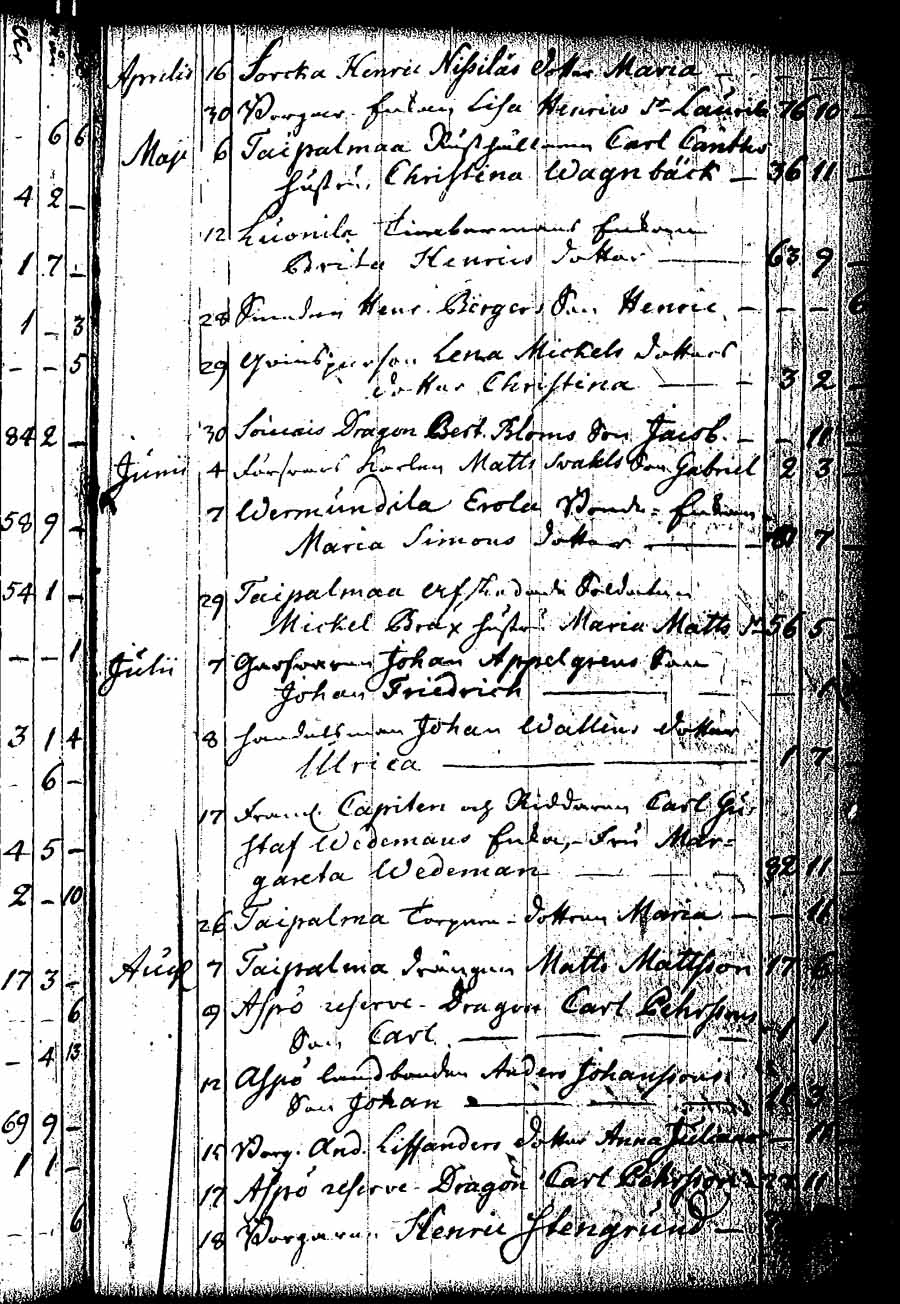 Aprilis 16 Sorcka Henric Nissiläs dotter Maria — — — —
30 Borgar Enkan Lisa Henrics Dr Laurile 76 10 —
Maji 6 Taipalmaa Rusthållaren Carl Canths
hustru Christina Wagnbäck — 36 11 —
12 Luonila Timbermans Enkan
Brita Henrics dotter — 63 9 —
28 Henr. Bergers Son Henric — — — 6
29 Lena Mickels dotters
dotter Christina — — 3 2 —
30 Dragon Bert. Bloms Son Jacob — — 11
Junii 4 Försvars Karlen Matts Son Gabriel 2 3
7 Wermundila Erola Bonde Enkan
Maria Simons dotter — 7 —
29 Taipalmaa afskedade Soldaten
Mickel Brax hustru Maria Matts Dr 56 5 —
Julii 7 Garfvaren Johan Appelgrens Son
Johan Friedrich — — — 1
8 handelsman Johan Wallens dotter
Ulrica — 1 7 —
17 Framl. Capiten och Riddaren Carl Gu-
staf Wedemans Enka, Fru Mar=
gareta Wedeman — — — 82 11 —
26 Taipalma Torpare dottren Maria — — 11
Aug 7 Taipalma drängen Matts Mattsson 17 6
9 Aspö reserve Dragon Carl Pehrssons
Son Carl — — — 1 1
12 Aspö landbonden Anders Johanssons
Son Johan — — — 3
15 Borg. And. Lissanders dotter Anna Juliana —
17 Aspö reserve Dragon Carl Pehrsson 11
18 Borgaren Henric Stengrund —
6 6
4 2 —
1 7 —
1 — 3
— — 5
84 2 —
58 9 —
54 1 —
— — 1
3 1 4
6 —
4 5 —
2 — 10
17 3 —
6
— 4 13
69 9 —
1 1 —
— — 6